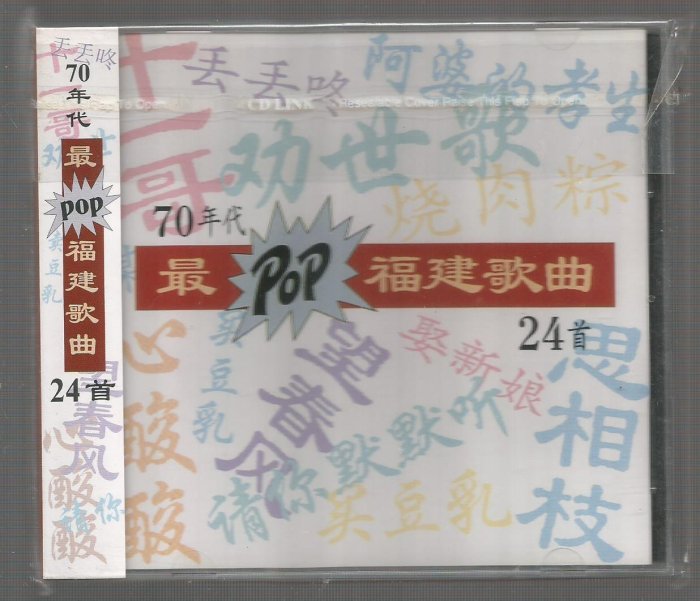 丢丢咚
十一哥
70年代
最
pop
福建歌曲
24首
望春风
心酸酸
请你
卖豆乳
十一哥
丢丢咚
阿婆
劝世歌
孝生
CD LINK
Resealable Cover Raise This Flap To Open
烧肉粽
70年代
最 POP 福建歌曲
24首
心酸酸
卖豆乳
望春风
娶新娘
思相枝
请你默默听
卖豆乳